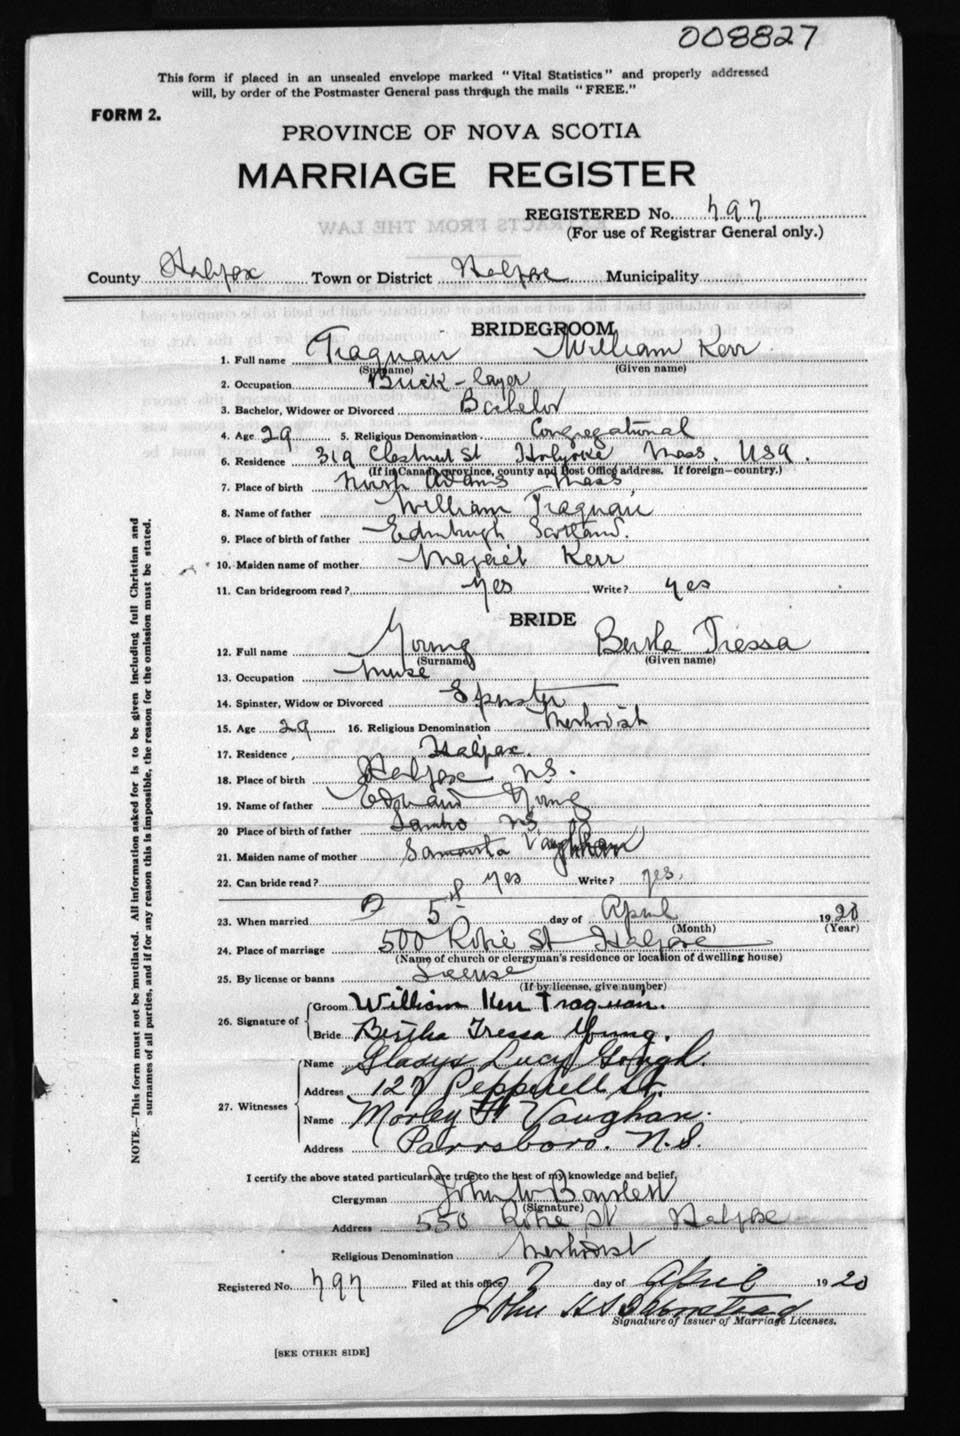 008827
This form if placed in an unsealed envelope marked "Vital Statistics" and properly addressed
will, by order of the Postmaster General pass through the mails "FREE."
FORM 2.
PROVINCE OF NOVA SCOTIA
MARRIAGE REGISTER
REGISTERED No. 797
(For use of Registrar General only.)
County Halifax Town or District Halifax Municipality
BRIDEGROOM
1. Full name Traquair William Kerr
(Surname) (Given name)
2. Occupation Brick-layer
3. Bachelor, Widower or Divorced Bachelor
4. Age 29 5. Religious Denomination Congregational
6. Residence 319 Chestnut St Holyoke Mass. USA.
(If in Canada province, county and Post Office address. If foreign—country.)
7. Place of birth North Adams Mass
8. Name of father William Traquair
9. Place of birth of father Edinburgh Scotland.
10. Maiden name of mother Kerr
11. Can bridegroom read? Yes Write? yes
BRIDE
12. Full name Young Bertha Tressa
(Surname) (Given name)
13. Occupation Nurse
14. Spinster, Widow or Divorced Spinster
15. Age 29 16. Religious Denomination Methodist
17. Residence Halifax.
18. Place of birth Halifax NS.
19. Name of father Edward Young
20 Place of birth of father Sambro NS
21. Maiden name of mother Samanta Vaughan
22. Can bride read? yes Write? yes.
23. When married 5 day of April 1920
(Month) (Year)
24. Place of marriage 500 Robie St Halifax
(Name of church or clergyman's residence or location of dwelling house)
25. By license or banns License
(If by license, give number)
26. Signature of Groom William Kerr Traquair.
Bride Bertha Tressa Young.
27. Witnesses Name Gladys Lucy Gough.
Address 127 Pepperell St.
Name Morley H Vaughan.
Address Parrsboro. N.S.
I certify the above stated particulars are true to the best of my knowledge and belief,
Clergyman John W Bartlett
(Signature)
Address 550 Robie St Halifax
Religious Denomination Methodist
Registered No. 797 Filed at this office 7 day of April 1920
John
Signature of Issuer of Marriage Licenses.
[SEE OTHER SIDE]
NOTE.—This form must not be mutilated. All information asked for is to be given including full Christian and
surnames of all parties, and if for any reason this is impossible, the reason for the omission must be stated.